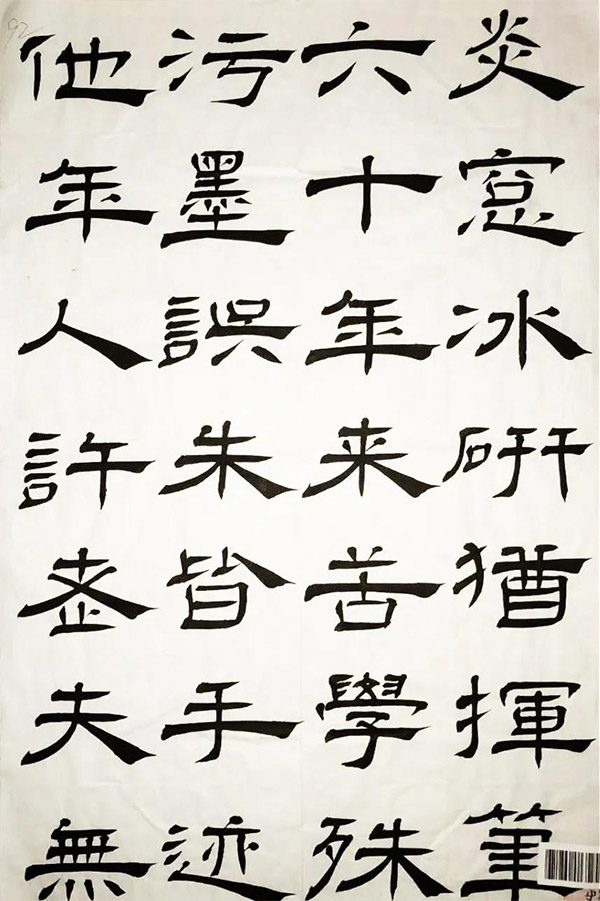 炎窓冰研猶揮筆
六十年来苦學殊
污墨誤朱皆手迹
他年人許老夫無
92